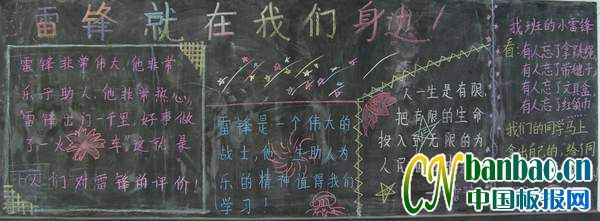 雷锋就在我们身边！
雷锋非常伟大，他非常
乐于助人，他非常热心，
雷锋出门一千里，好事做
了一火车，这就是
人们对雷锋的评价！
雷锋是一个伟大的
战士，他一生助人为
乐的精神值得我们
学习！
人一生是有限，
把有限的生命
投入到无限的为
人民
找班的小雷锋
看：有人忘了拿跳绳
有人忘了带毽子
有人忘了文具盒
有人忘了红领巾
我们的同学马上
拿出自己的，给了同
banbao.cn
中国板报网